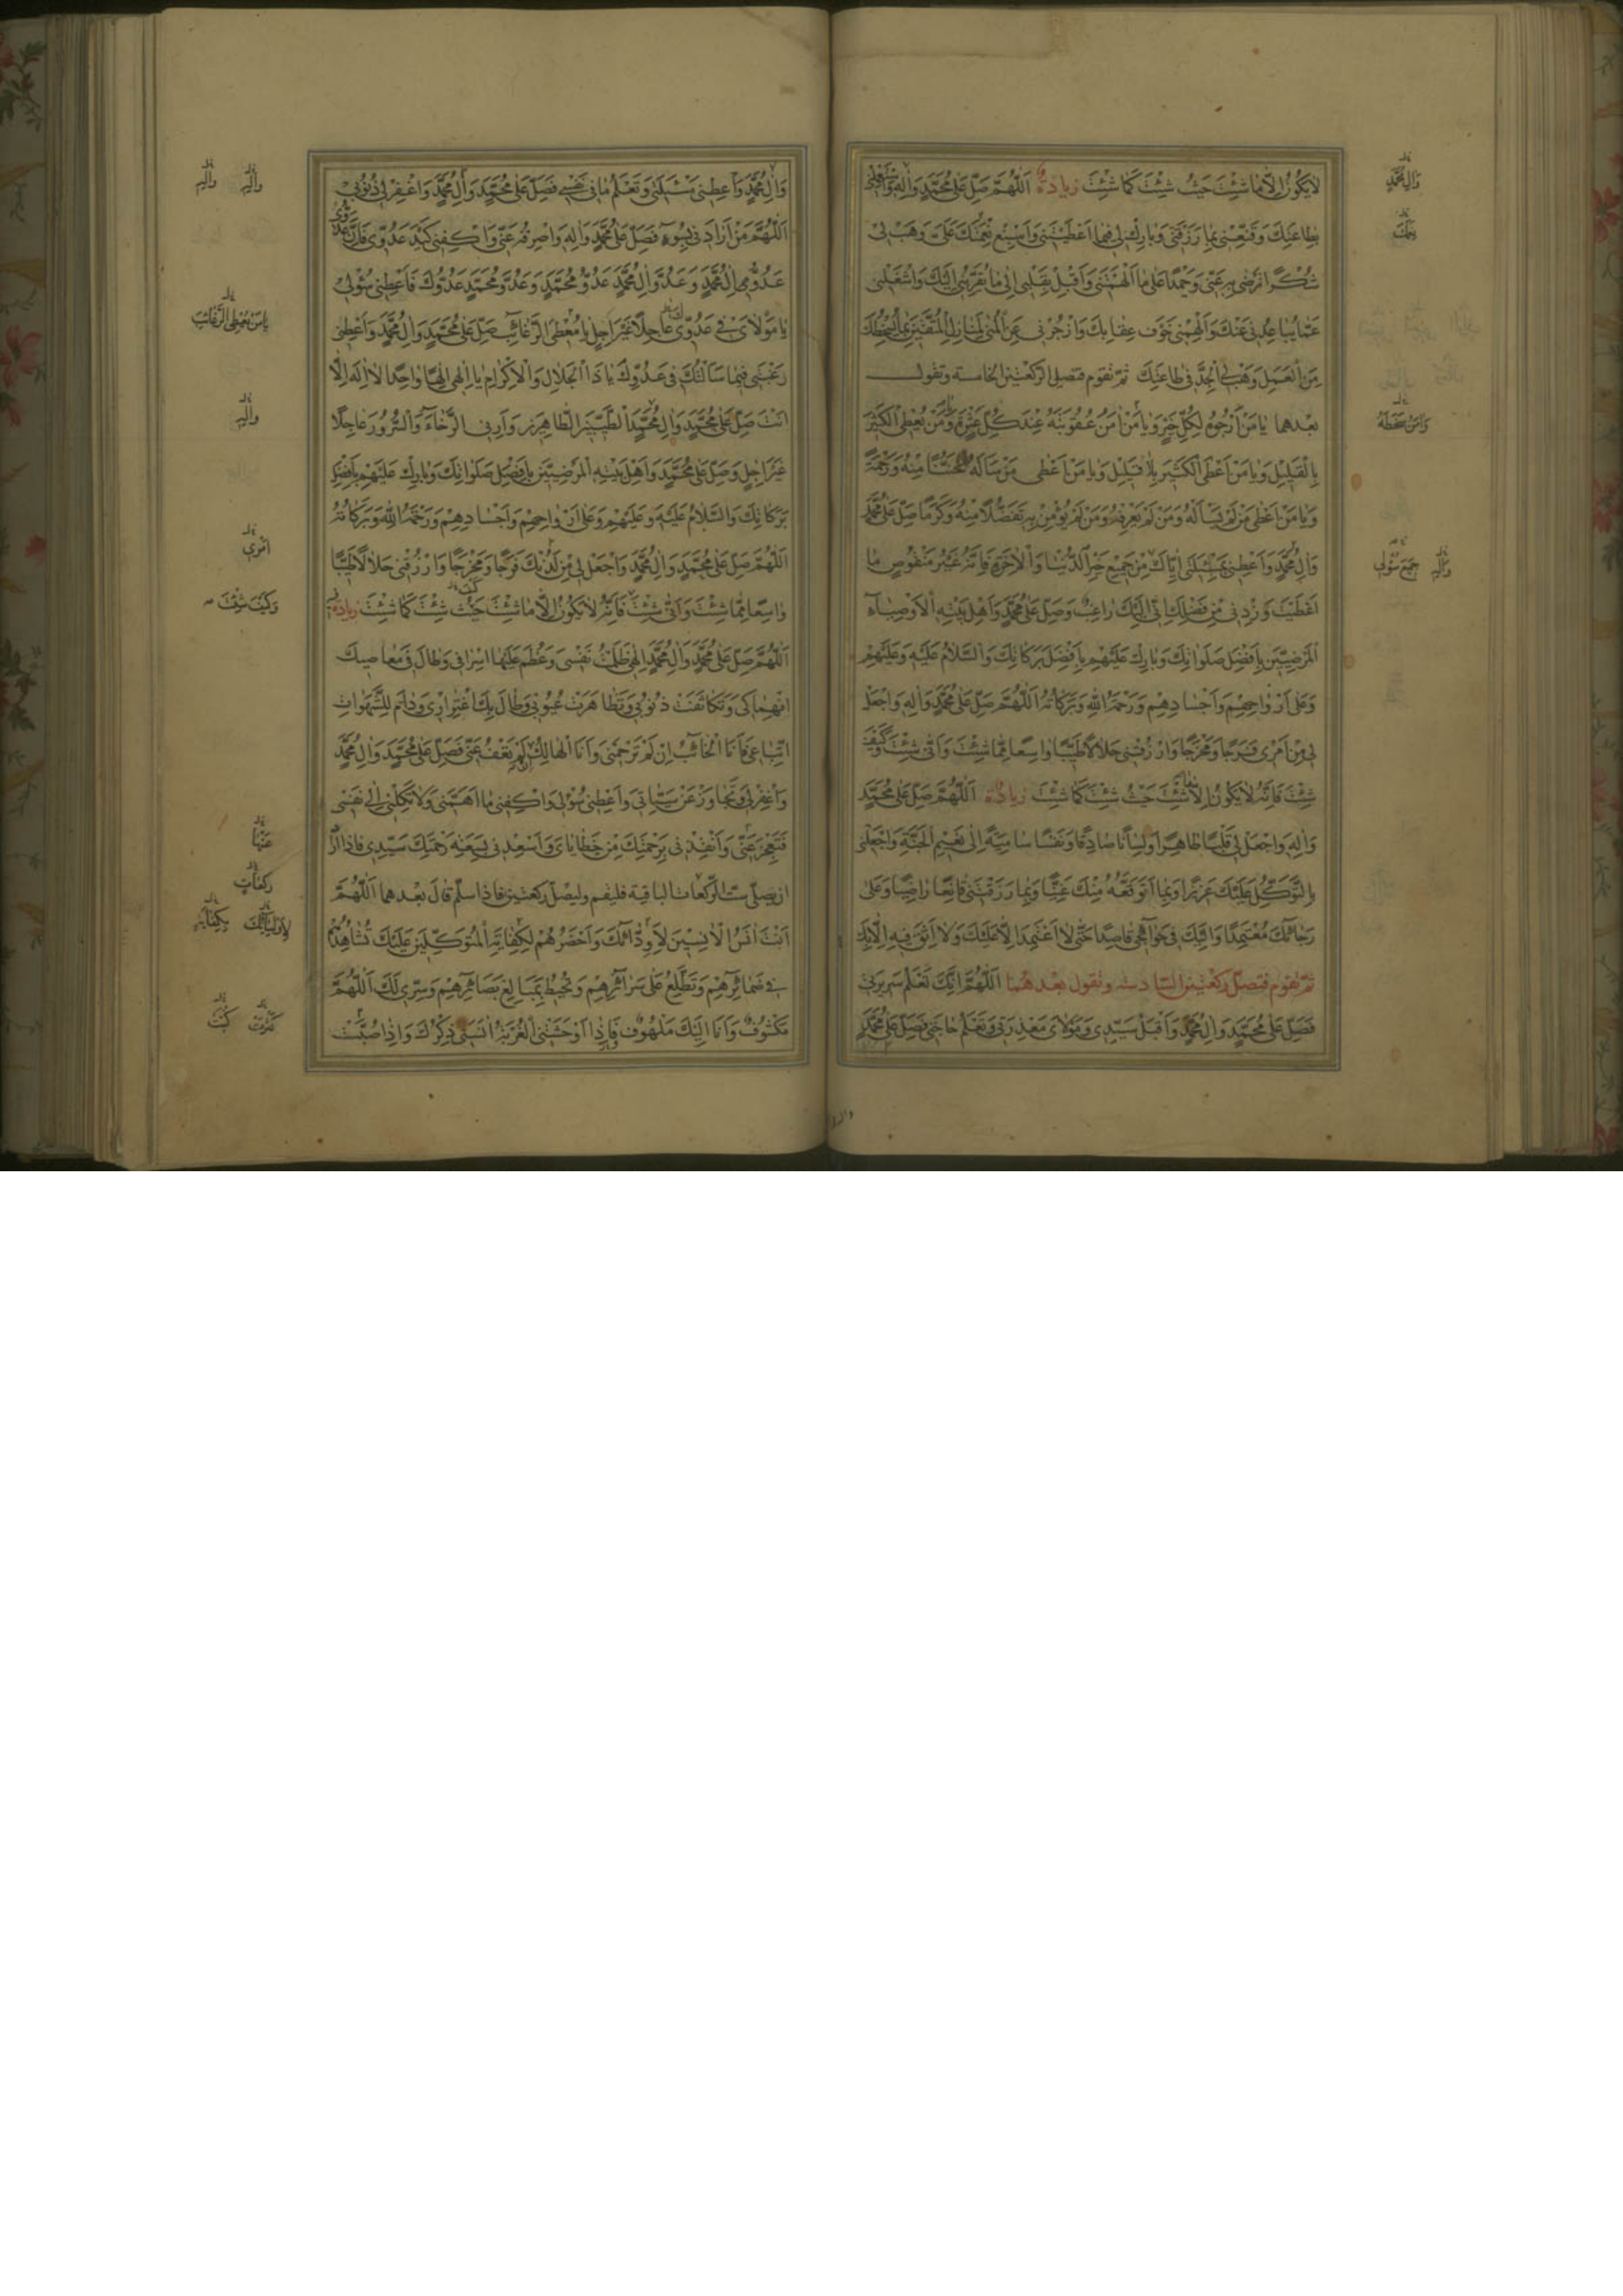 لا يَكُونُ إِلّا ما شِئْتَ حَيْثُ شِئْتَ كَما شِئْتَ زيادة اَللّٰهُمَّ صَلِّ عَلىٰ مُحَمَّدٍ وَالِهِ وَاشْغَلْنى
بِطاعَتِكَ وَقَنِّعْنى بِما رَزَقْتَنى وَبارِكْ لى فيما اَعْطَيْتَنى وَاَسْبِغْ نِعَمَكَ عَلَىَّ وَهَبْ لى
شُكْرًا تَرْضىٰ بِهِ عَنّى وَحَمْدًا عَلىٰ ما اَلْهَمْتَنى وَاَقْبِلْ بِقَلْبى اِلىٰ ما يُقَرِّبُنى اِلَيْكَ وَاشْغَلْنى
عَمّا يُباعِدُنى عَنْكَ وَاَلْهِمْنى خَوْفَ عِقابِكَ وَازْجُرْنى عَنِ الْمُنىٰ لِمَنازِلِ الْمُتَّقينَ بِما يُسْخِطُكَ
مِنَ الْعَمَلِ وَهَبْ لِىَ الْجِدَّ فى طاعَتِكَ ثمّ تقوم فتصلى الركعتين الخامسة وتقول
بعدهما يا مَنْ اَرْجُوهُ لِكُلِّ خَيْرٍ وَيا مَنْ اٰمَنُ عُقُوبَتَهُ عِنْدَ كُلِّ عَثْرَةٍ وَمَنْ يُعْطِى الْكَثيرَ
بِالْقَليلِ وَيا مَنْ اَعْطَى الْكَثيرَ بِالْقَليلِ وَيا مَنْ اَعْطىٰ مَنْ سَاَلَهُ تَحَنُّنًا مِنْهُ وَرَحْمَةً
وَيا مَنْ اَعْطىٰ مَنْ لَمْ يَسْاَلْهُ وَمَنْ لَمْ يَعْرِفْهُ وَمَنْ لَمْ يُؤْمِنْ بِهِ تَفَضُّلًا مِنْهُ وَكَرَمًا صَلِّ عَلىٰ مُحَمَّدٍ
وَالِ مُحَمَّدٍ وَاَعْطِنى بِمَسْئَلَتى اِيّاكَ مِنْ جَميعِ خَيْرِ الدُّنْيا وَالْاٰخِرَةِ فَاِنَّهُ غَيْرُ مَنْقُوصٍ ما
اَعْطَيْتَ وَزِدْنى مِنْ فَضْلِكَ اِنّى اِلَيْكَ راغِبٌ وَصَلِّ عَلىٰ مُحَمَّدٍ وَاَهْلِ بَيْتِهِ الْاَوْصِيآءِ
الْمَرْضِيّينَ بِاَفْضَلِ صَلَواتِكَ وَبارِكْ عَلَيْهِمْ بِاَفْضَلِ بَرَكاتِكَ وَالسَّلامُ عَلَيْهِ وَعَلَيْهِمْ
وَعَلىٰ اَرْواحِهِمْ وَاَجْسادِهِمْ وَرَحْمَةُ اللهِ وَبَرَكاتُهُ اَللّٰهُمَّ صَلِّ عَلىٰ مُحَمَّدٍ وَالِهِ وَاجْعَلْ
لى مِنْ اَمْرى فَرَجًا وَمَخْرَجًا وَارْزُقْنى حَلالًا طَيِّبًا واسِعًا مِمّا شِئْتَ وَاَنّىٰ شِئْتَ وَكَيْفَ
شِئْتَ فَاِنَّهُ لا يَكُونُ اِلّا ما شِئْتَ حَيْثُ شِئْتَ كَما شِئْتَ زيادة اَللّٰهُمَّ صَلِّ عَلىٰ مُحَمَّدٍ
وَالِهِ وَاجْعَلْ لى قَلْبًا طاهِرًا وَلِسانًا صادِقًا وَنَفْسًا سامِيَةً اِلىٰ نَعيمِ الْجَنَّةِ وَاجْعَلْنى
بِالتَّوَكُّلِ عَلَيْكَ عَزيزًا وَبِما اَتَوَقَّعُهُ مِنْكَ غَنِيًّا وَبِما رَزَقْتَنى قانِعًا راضِيًا وَعَلىٰ
رَجائِكَ مُعْتَمِدًا وَاِلَيْكَ فى حَوائِجى قاصِدًا حَتّىٰ لا اَعْتَمِدَ اِلّا عَلَيْكَ وَلا اَثِقَ فيهِ اِلّا بِكَ
ثمّ تقوم فتصلّى ركعتين السّادسة وتقول بعدهما اَللّٰهُمَّ اِنَّكَ تَعْلَمُ سَريرَتى
فَصَلِّ عَلىٰ مُحَمَّدٍ وَالِ مُحَمَّدٍ وَاقْبَلْ سَيِّدى وَمَوْلاىَ مَعْذِرَتى وَتَعْلَمُ حاجَتى فَصَلِّ عَلىٰ مُحَمَّدٍ
وَالِ مُحَمَّدٍ
وَمَنْ سَخَطَهُ
وَالِهِ جَميعَ سُؤْلى
وَالِ مُحَمَّدٍ وَاَعْطِنى مَسْئَلَتى وَتَعْلَمُ ما فى نَفْسى فَصَلِّ عَلىٰ مُحَمَّدٍ وَالِ مُحَمَّدٍ وَاغْفِرْ لى ذُنُوبى
اَللّٰهُمَّ مَنْ اَرادَنى بِسُوءٍ فَصَلِّ عَلىٰ مُحَمَّدٍ وَالِهِ وَاصْرِفْهُ عَنّى وَاكْفِنى كَيْدَ عَدُوّى فَاِنَّ عَدُوّى
عَدُوُّ الِ مُحَمَّدٍ وَعَدُوَّ الِ مُحَمَّدٍ عَدُوُّ مُحَمَّدٍ وَعَدُوَّ مُحَمَّدٍ عَدُوُّكَ فَاَعْطِنى سُؤْلى
يا مَوْلاىَ فى عَدُوّى عاجِلًا غَيْرَ اٰجِلٍ يا مُعْطِىَ الرَّغائِبِ صَلِّ عَلىٰ مُحَمَّدٍ وَالِ مُحَمَّدٍ وَاَعْطِنى
رَغْبَتى فيما سَاَلْتُكَ فى عَدُوِّكَ يا ذَا الْجَلالِ وَالْاِكْرامِ يا اِلٰهى اِلٰهًا واحِدًا لا اِلٰهَ اِلّا
اَنْتَ صَلِّ عَلىٰ مُحَمَّدٍ وَالِ مُحَمَّدٍ الطَّيِّبينَ الطّاهِرينَ وَاَرِنى الرَّخآءَ وَالسُّرُورَ عاجِلًا
غَيْرَ اٰجِلٍ وَصَلِّ عَلىٰ مُحَمَّدٍ وَاَهْلِ بَيْتِهِ الْمَرْضِيّينَ بِاَفْضَلِ صَلَواتِكَ وَبارِكْ عَلَيْهِمْ بِاَفْضَلِ
بَرَكاتِكَ وَالسَّلامُ عَلَيْهِ وَعَلَيْهِمْ وَعَلىٰ اَرْواحِهِمْ وَاَجْسادِهِمْ وَرَحْمَةُ اللهِ وَبَرَكاتُهُ
اَللّٰهُمَّ صَلِّ عَلىٰ مُحَمَّدٍ وَالِ مُحَمَّدٍ وَاجْعَلْ لى مِنْ لَدُنْكَ فَرَجًا وَمَخْرَجًا وَارْزُقْنى حَلالًا طَيِّبًا
واسِعًا مِمّا شِئْتَ وَاَنّىٰ شِئْتَ فَاِنَّهُ لا يَكُونُ اِلّا ما شِئْتَ حَيْثُ شِئْتَ كَما شِئْتَ زيادة
اَللّٰهُمَّ صَلِّ عَلىٰ مُحَمَّدٍ وَالِ مُحَمَّدٍ اِلٰهى ظَلَمْتُ نَفْسى وَعَظُمَ عَلَيْها اِسْرافى وَطالَ فى مَعاصيكَ
انْهِماكى وَتَكاثَفَتْ ذُنُوبى وَتَظاهَرَتْ عُيُوبى وَطالَ بِكَ اغْتِرارى وَدامَ لِلشَّهَواتِ
اتِّباعى فَاَنَا الْخائِبُ اِنْ لَمْ تَرْحَمْنى وَاَنَا الْهالِكُ اِنْ لَمْ تَعْفُ عَنّى فَصَلِّ عَلىٰ مُحَمَّدٍ وَالِ مُحَمَّدٍ
وَاغْفِرْ لى وَتَجاوَزْ عَنْ سَيِّئاتى وَاَعْطِنى سُؤْلى وَاكْفِنى ما اَهَمَّنى وَلا تَكِلْنى اِلىٰ نَفْسى
فَتَعْجِزَ عَنّى وَاَنْقِذْنى بِرَحْمَتِكَ مِنْ خَطاياىَ وَاَسْعِدْنى بِسَعَةِ رَحْمَتِكَ سَيِّدى فاذا اراد
ان يصلى ست الركعات الباقية فليقم وليصل ركعتين فاذا سلّم قال بعدهما اَللّٰهُمَّ
اَنْتَ اٰنَسُ الْاٰنِسينَ لِاَوِدّائِكَ وَاَحْضَرُهُمْ لِكِفايَةِ الْمُتَوَكِّلينَ عَلَيْكَ تُشاهِدُهُمْ
فى ضَمائِرِهِمْ وَتَطَّلِعُ عَلىٰ سَرائِرِهِمْ وَتُحيطُ بِمَبالِغِ بَصائِرِهِمْ وَسِرّى لَكَ اَللّٰهُمَّ
مَكْشُوفٌ وَاَنَا اِلَيْكَ مَلْهُوفٌ فَاِذا اَوْحَشَتْنِى الْغُرْبَةُ اٰنَسَنى ذِكْرُكَ وَاِذا صُبَّتْ
وَالِهِ وَالِهِ
يا مَنْ يُعْطِى الرَّغائِبَ
وَالِهِ
اَمْرى
وَكَيْفَ شِئْتَ
عَنْها
ركعات
لِاَوْلِيائِكَ بِكِفايَةِ
كَثُرَتْ